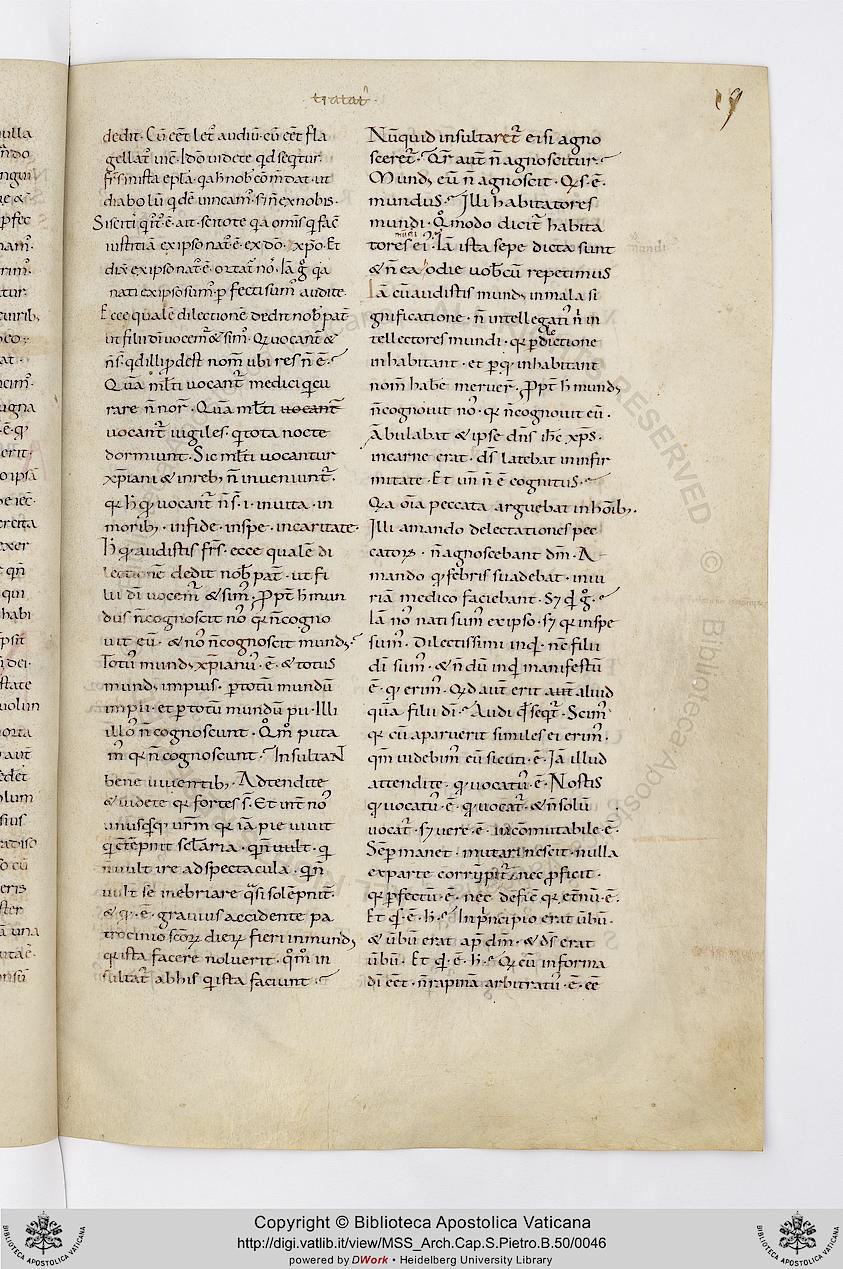 tratat̄
dedit · Cū eēt let᷑ audiū · cū eēt fla
gellat᷑ uic̄ · Ido uidete qd seqtur
frs̄ in ista epl̄a · qa h nob̄ com̄dat · ut
diabolū qdē uincam᷒ · s;
Sisciti q̄ · ait · scitote qa om̄is q facē
iustitiā ex ipso nat᷒ ē · ex dō · xp̄o · Et
nati ex ipso sum᷒ · p fecti sum᷒ audite ·
Ecce qualē dilectionē dedit nob̄ pat̄
ut filii dī uocem᷑ & sim᷒ · Qī uocant᷑ &
nom̄ ubi res n̄ ē ·
Quā ml̄ti uocant᷑ medici q cu
rare n̄ nor̄ · Quā ml̄ti uocant᷑
uocant᷑ uigiles · q tota nocte
dormiunt · Sic ml̄ti uocantur
xp̄iani & in reb; n̄ inueniunt᷑ ·
qī h qd uocant᷑ n̄ s̄ · i · in uita · in
morib; · in fide · in spe · in caritate ·
h qd audistis frs̄ · ecce qualē di
lectionē dedit nob̄ pat̄ · ut fi
lii dī uocem᷑ & sim᷒ · Ppt̄ h mun
dus n̄ cognoscit no᷒ qī n̄ cogno
uit eū · & no᷒ n̄ cognoscit mund; ·
Totū mund; xp̄ianū · ē · & totus
mund; impius · p totū mundū
impii · et p totū mundū pii · Illi
illo᷒ n̄ cognoscunt · Qōm puta
m᷒ qī n̄ cognoscunt · Insultant
bene uiuentib; · Adtendite
& uidete qī fortes s̄ · Et int̄ no᷒
unusq̄sq urm̄ qī iā pie uiuit
q ctēpnit scl̄aria · q n̄ uult · q
n̄ uult ire ad spectacula · q n̄
uult se inebriare q̄si solēpnit᷑ ·
& qd · ē · grauius accidente pa
trocinio scōꝝ dieꝝ fieri inmund;
q ista facere noluerit · qōm in
sultat᷑ ab his q ista faciunt ·
Nūquid insultaret᷑ ei si agno
sceret᷑ · Qr̄ aut̄ n̄ agnoscitur ·
Mund; eū n̄ agnoscit · Qs · ē ·
mundus · Illi habitatores
mundi · Qōmodo dicit᷑ habita
tores ei᷒ · Iā ista sepe dicta sunt
& n̄ ea odie uob̄cū repetimus
Iā cū audistis mund; in mala si
gnificatione · n̄ intellegatī n̄ in
tellectores mundi · qī p dilectione
inhabitant · et p qd inhabitant
nom̄ habē meruer̄ · Ppt̄ h mund;
n̄ cognouit no᷒ · qī n̄ cognouit eū ·
Ābulabat & ipse dn̄s ihc̄ xp̄s ·
in carne erat · ds̄ latebat in infir
mitate · Et un̄ n̄ ē cognitus ·
Qa oīa peccata arguebat in hoīb; ·
Illi amando delectationes pec
catoꝝ · n̄ agnoscebant dm̄ · A
mando qd febris suadebat · iniu
riā medico faciebant · S; qd g̊ ·
Iā no᷒ nati sum᷒ ex ipso · s; qī in spe
sum᷒ · Dilectissimi inqd · nc̄ filii
dī sum᷒ · & n̄ dū inqd manifestū
ē · qd erim᷒ · Qd aut̄ erit aut̄ aliud
quā filii dī · Audi qd seqt᷑ · Scim᷒
qī cū aparuerit similes ei erim᷒ ·
qm̄ uidebim᷒ eū sicuti · ē · Iā illud
attendite · qd uocatū · ē · Nostis
qd uocatū · ē · qd uocat᷑ · & n̄ solū
uocat᷑ · s; uere · ē · incōmutabile · ē ·
Sēp manet · mutari nescit · nulla
ex parte corrūpit᷑ · nec pficit ·
qī pfectū · ē · nec deficit qī etn̄ū · ē ·
Et qd · ē · h · In principio erat ūbū ·
& ūbū erat ap̄ dm̄ · & ds̄ erat
ūbū · Et qd · ē · h · Qī cū in forma
dī eēt · n̄ rapinā arbitratu᷒ · ē · eē
Copyright © Biblioteca Apostolica Vaticana
http://digi.vatlib.it/view/MSS_Arch.Cap.S.Pietro.B.50/0046
powered by DWork • Heidelberg University Library